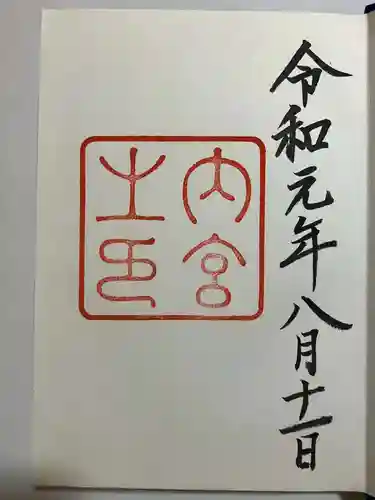 令和元年八月十一日
内宮
之印